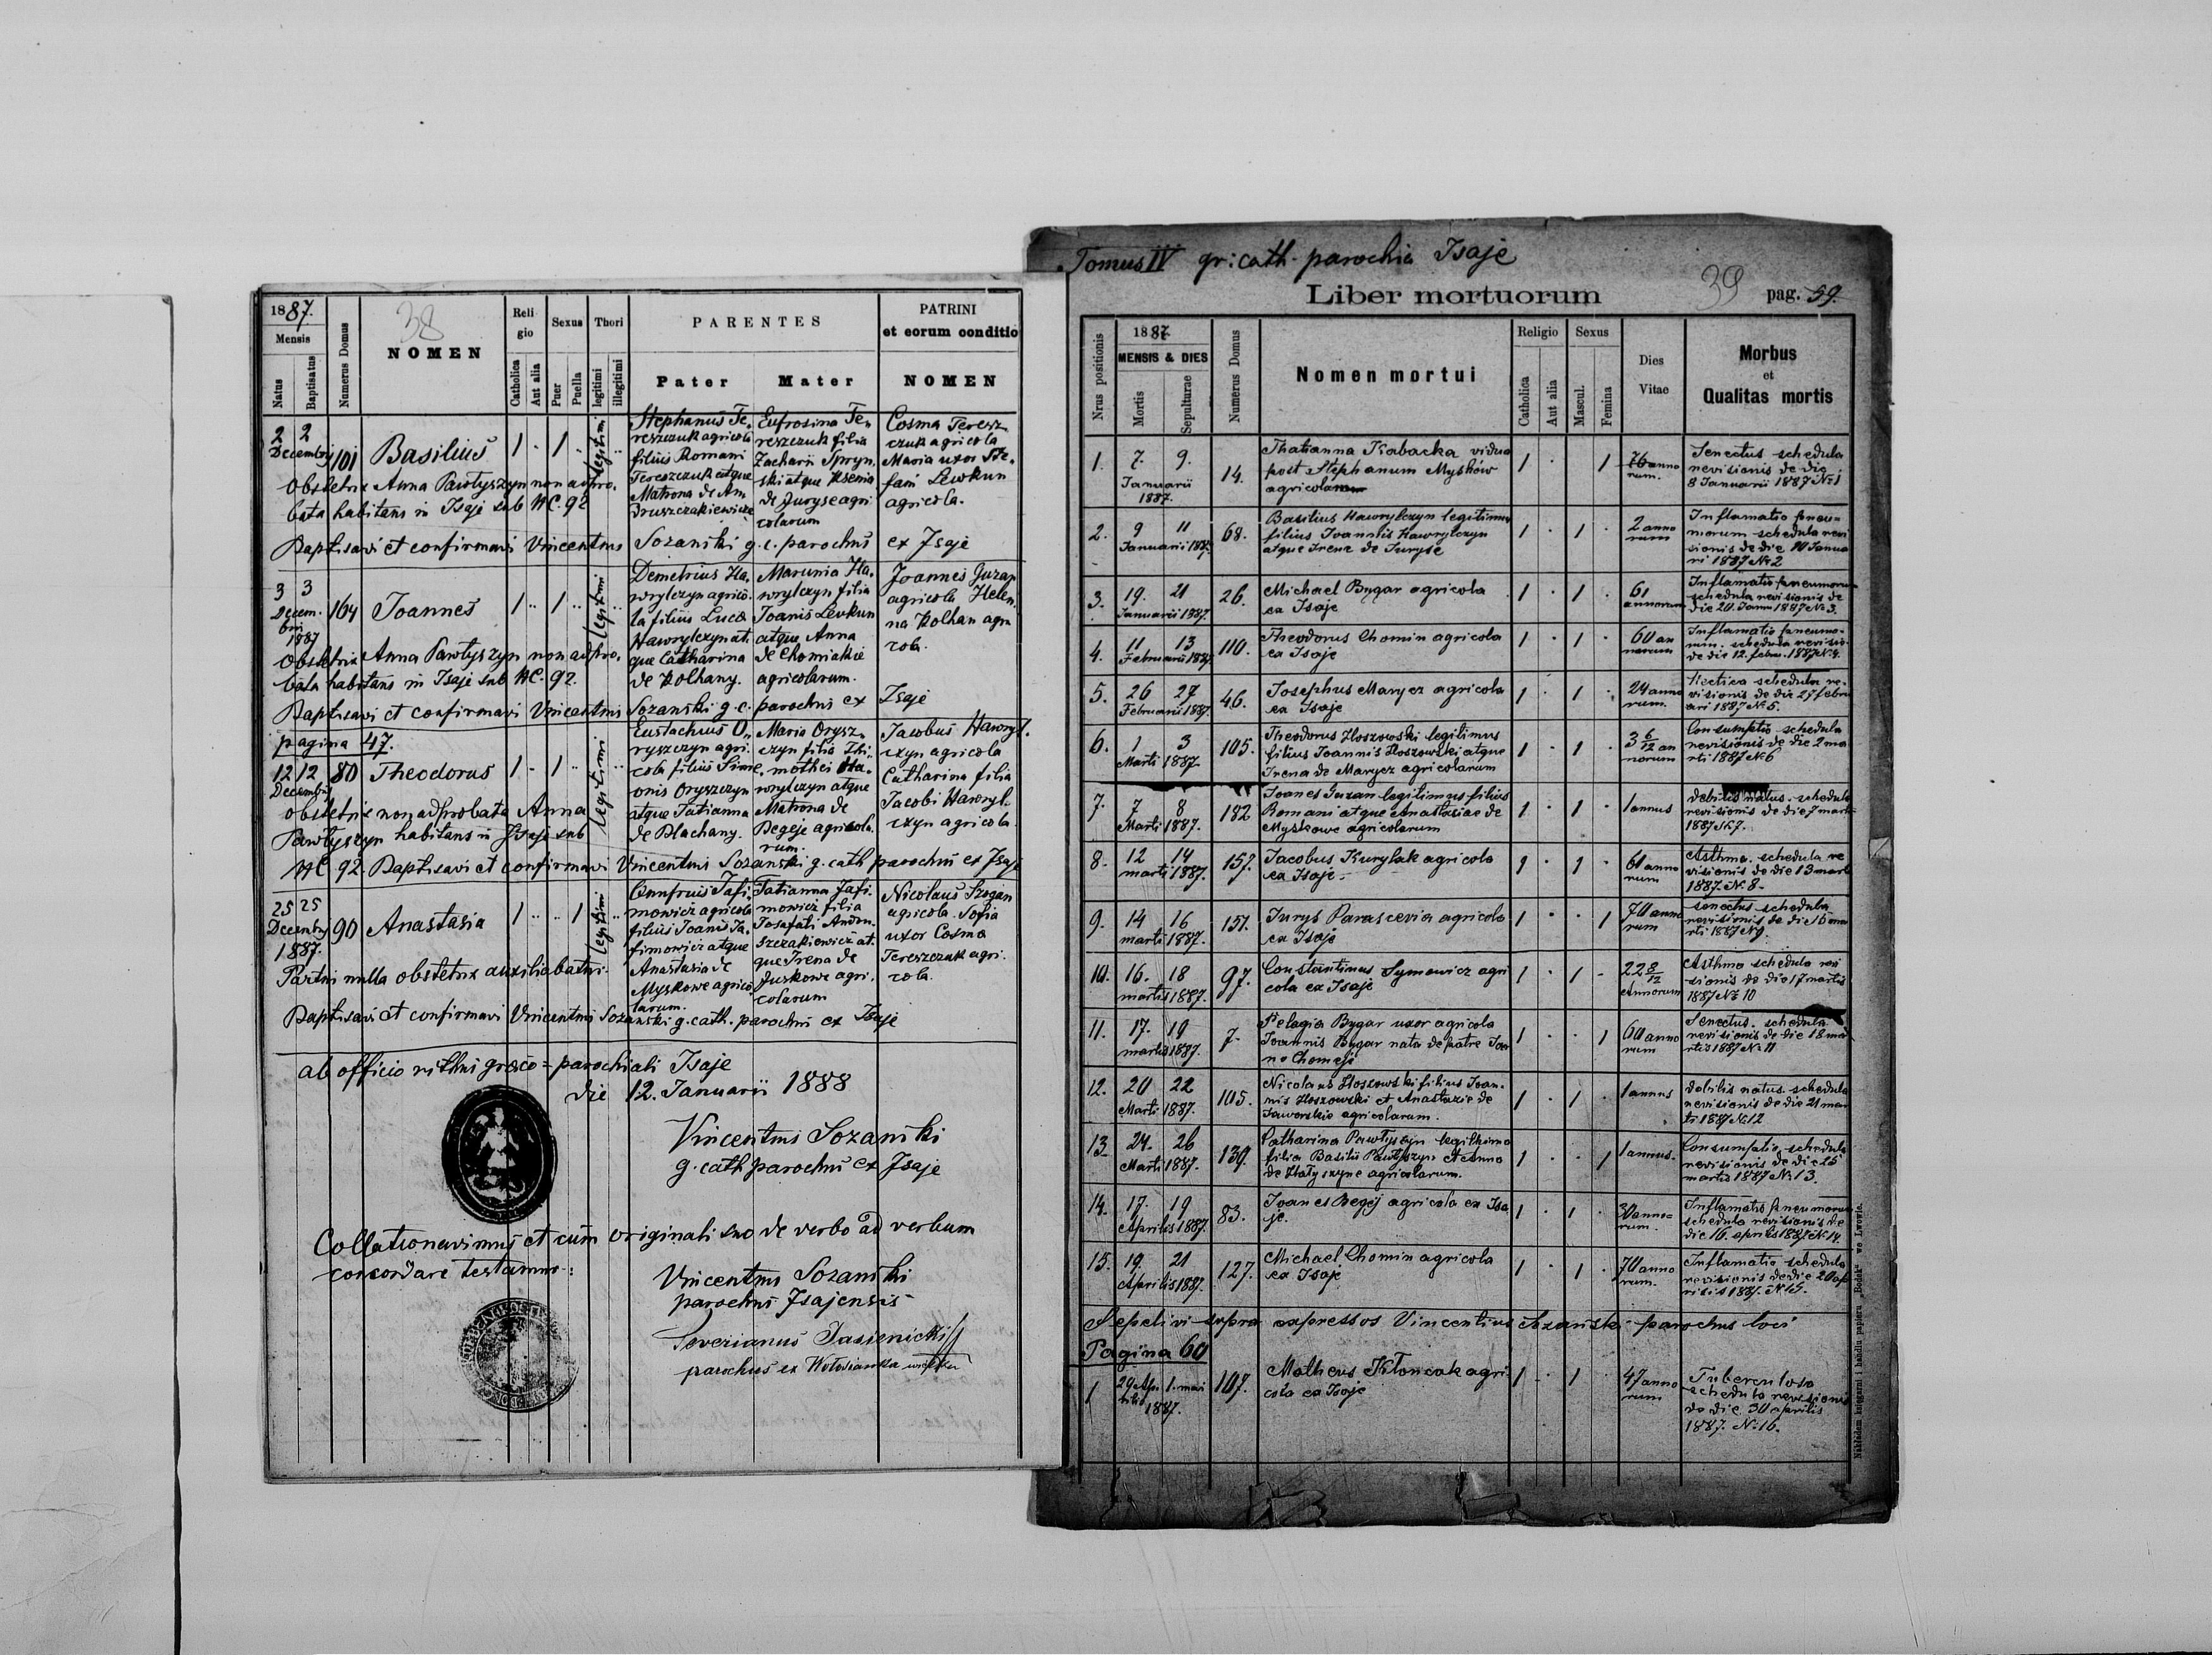 1887.
Mensis
Natus
Baptisatus
Numerus Domus
38
NOMEN
Reli-
gio
Catholica
Aut alia
Sexus
Puer
Puella
Thori
legitimi
illegitimi
PARENTES
Pater
Mater
PATRINI
et eorum conditio
NOMEN
2 2
Decembris
101
Basilius
1 1
legitimi
Stephanus Te-
reszczuk agricola
filius Romani
Tereszczuk atque
Matrona de An
druszczakiewicze
Eufrosina Te-
reszczuk filia
Zacharii Spryn-
ski atque Xsenia
de Juryse agri
colarum
Cosma Teresz-
czuk agricola
Maria uxor Ste-
fani Lewkun
agricola.
Obstetrix Anna Pawłyszyn non adpro-
bata habitans in Isaje sub NC. 92
Baptisavi et confirmavi Vincentius Sozański g. c. parochus ex Isaje
3 3
Decem-
bris
1887
164
Joannes
1 1
legitimi
Demetrius Ha-
wrylczyn agrico-
la filius Luca
Hawrylczyn at-
que Catharina
de Kolhany.
Marunia Ha-
wrylczyn filia
Joanis Levkun
atque Anna
de Chomiakie
agricolarum.
Joannes Guzan
agricola Helen-
na Kolhan agri
cola.
Obstetrix Anna Pawłyszyn non adpro-
bata habitans in Isaje sub NC. 92.
Baptisavi et confirmavi Vincentius Sozański g. c. parochus ex Isaje
pagina 47.
12 12
Decembris
80
Theodorus
1 1
legitimi
Eustachius O-
ryszczyn agri-
cola filius Sime-
onis Oryszczyn
atque Tatianna
de Blachany.
Maria Orysz-
czyn filia Thi-
mothei Ha-
wrylczyn atque
Matrona de
Begeje agricola-
rum.
Jacobus Hawryl-
czyn agricola
Catharina filia
Jacobi Hawryl-
czyn agricola.
obstetrix non adprobata Anna
Pawłyszyn habitans in Isaje sub
NC 92. Baptisavi et confirmavi Vincentius Sozański g. cath parochus ex Isaje
25 25
Decembris
1887.
90
Anastasia
1 1
legitimi
Onnfruis Jafi-
mowicz agricola
filius Joanis Ja-
fimowicz atque
Anastasia de
Myskowe agrico
larum.
Tatianna Jafi-
mowicz filia
Josafati Andru-
szczakiewicz at-
que Irena de
Juskowe agri-
colarum
Nicolaus Szegan
agricola. Sofia
uxor Cosma
Tereszczuk agri-
cola.
Partui nulla obstetrix auxiliabatur.
Baptisavi et confirmavi Vincentius Sozański g. cath. parochus ex Isaje
ab officio rithus græco-parochiali Isaje
die 12. Januarii 1888
Vincentius Sozański
g. cath parochus ex Isaje
Collationavimus et cum originali suo de verbo ad verbum
concordare testamur:
Vincentius Sozański
parochus Isajensis
Severianus Jasienicki
parochus ex Wołosianka
Tomus IV gr: cath. parochia Isaje
Liber mortuorum
39
pag. 59.
Nrus positionis
1887
MENSIS & DIES
Mortis
Sepulturae
Numerus Domus
Nomen mortui
Religio
Catholica
Aut alia
Sexus
Mascul.
Femina
Dies
Vitae
Morbus
et
Qualitas mortis
1. 7. 9.
Januarii
1887.
14.
Thatianna Kabacka vidua
post Stephanum Mysków
agricola
1 1
76 anno
rum.
Senectus schedula
revisionis de die
8 Januarii 1887 № 1
2. 9 11
Januarii 1887.
68.
Basilius Hawrylczyn legitimus
filius Ivannis Hawrylczyn
atque Irena de Juryse
1 1
2 anno
rum
Inflamatio pneu-
morum schedula revi
sionis de die 10 Janua
rii 1887 № 2
3. 19. 21
Januarii 1887.
26.
Michael Bygar agricola
ex Isaje
1 1
61
annorum
Inflamatio pneumorum
schedula revisionis de
die 20. Januarii 1887 № 3.
4. 11 13
Februarii 1887.
110.
Theodorus Chomin agricola
ex Isaje
1 1
60 an
norum
Inflamatio pneumo-
rum. schedula revisio-
de die 12. febru. 1887 № 4.
5. 26 27
Februarii 1887.
46.
Josephus Marycz agricola
ex Isaje
1 1
24 anno
rum.
Hectica schedula re-
visionis de die 27 febru
ari 1887 № 5.
6. 1 3
Marti 1887.
105.
Theodorus Hoszowski legitimus
filius Joannis Hoszowski atque
Irena de Marycz agricolarum
1 1
3 6/12 an
norum
Consumptio schedula
revisionis de die 2 ma
rti 1887 № 6
7. 7 8
Marti 1887.
182
Joanes Guzan legitimus filius
Romani atque Anastasiae de
Myskowe agricolarum
1 1
1 annus
debilis natus. schedula
revisionis de die 7 marti
1887 № 7.
8. 12 14
marti 1887.
157.
Jacobus Kurylak agricola
ex Isaje.
1 1
60 anno
rum
Asthma. schedula re
visionis de die 13 marti
1887. № 8.
9. 14 16
marti 1887.
151.
Juryś Parascevia agricola
ex Isaje
1 1
70 anno
rum
senectus schedula
revisionis de die 15 ma
rti 1887 № 9
10. 16. 18
martis 1887.
97.
Constantinus Symowicz agri
cola ex Isaje
1 1
22 8/12
Annorum
Asthma schedula revi
sionis de die 17 martis
1887 № 10
11. 17. 19
martis 1887.
7.
Pelagia Bygar uxor agricola
Joannis Bygar nata de patre Ioan
no Chomeji
1 1
60 anno
rum
Senectus. schedula
revisionis de die 18 ma
rtis 1887 № 11
12. 20 22
Marti 1887.
105.
Nicolaus Hoszowski filius Ioan-
nis Hoszowski et Anastazie de
Jaworskie agricolarum.
1 1
1 annus
debilis natus. schedula
revisionis de die 21 mar
ti 1887 № 12
13. 24. 26
Marti 1887.
139.
Catharina Pawłyszyn legitima
filia Basilii Pawłyszyn et Anna
de Hałyszyne agricolarum.
1 1
1 annus.
Consumptio schedula
revisionis de die 25
martis 1887 № 13.
14. 17. 19
Aprilis 1887.
83.
Joanes Begej agricola ex Isa
je.
1 1
30 anno-
rum.
Inflamatio pneumorum
schedula revisionis de
die 16. aprilis 1887 № 14.
15. 19. 21
Aprilis 1887.
127.
Michael Chomin agricola
ex Isaje
1 1
70 anno
rum.
Inflamatio schedula
revisionis de die 20 ap
rilis 1887. № 15.
Sepelivi supra expressos Vincentius Sozański parochus loci
Pagina 60
1 29 Ap- 1. mai
rilis
1887.
107.
Matheus Kłoncak agri-
cola ex Isaje
1 1
47 anno
rum
Tuberculosa
schedula revisionis
de die 30 aprilis
1887. № 16.
Nakładem księgarni i handlu papieru „Bodek" we Lwowie.